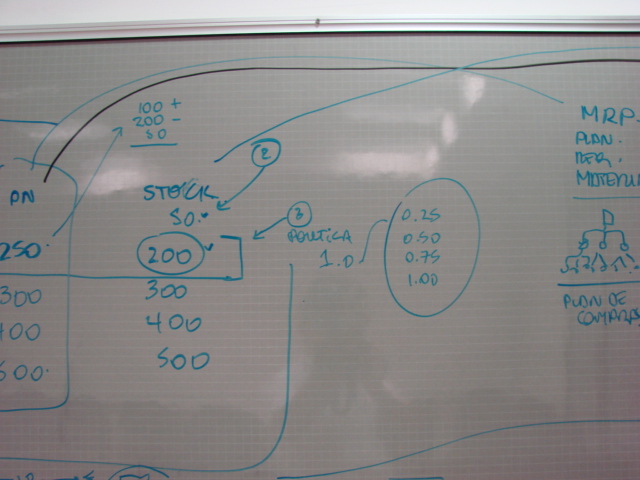 100 +
200 -
50
②
STOCK
50.
PN
250.
200
③
POLITICA
1.0
0.25
0.50
0.75
1.00
300
300
400
400
500
500.
MRP.
PLAN.
REQ.
MATERIA
D
PLAN DE
COMPRAS